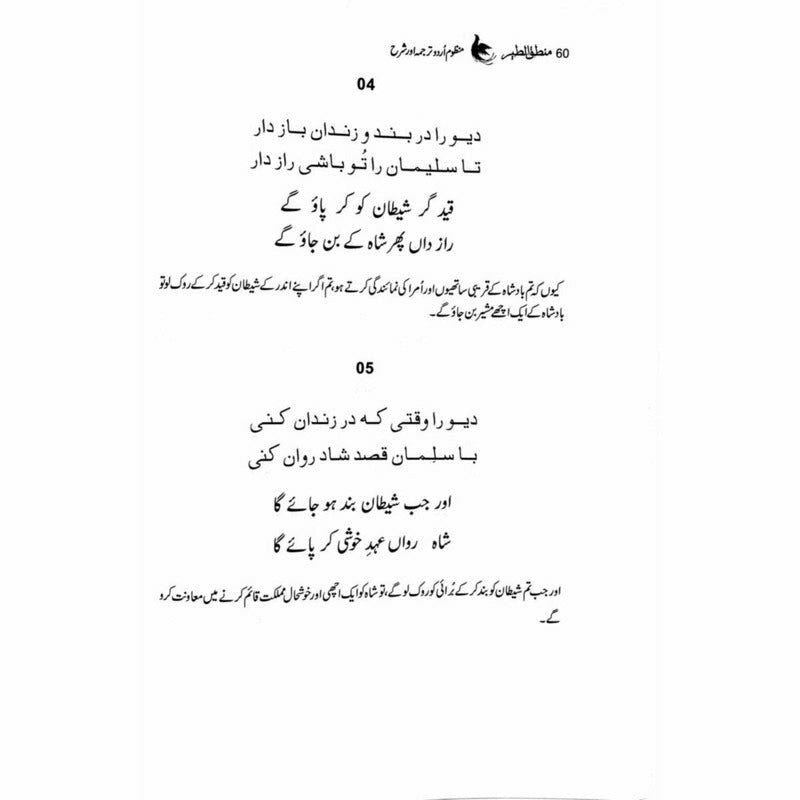 60 منطق الطیر منظوم اُردو ترجمہ اور شرح
04
دیو را در بند و زندان باز دار
تا سلیمان را تُو باشی راز دار
قید گر شیطان کو کر پاؤ گے
راز داں پھر شاہ کے بن جاؤ گے
کیوں کہ تم بادشاہ کے قریبی ساتھیوں اور اُمرا کی نمائندگی کرتے ہو، تم اگر اپنے اندر کے شیطان کو قید کر کے روک لو تو
بادشاہ کے ایک اچھے مشیر بن جاؤ گے۔
05
دیو را وقتی که در زندان کنی
با سلِمان قصد شاد روان کنی
اور جب شیطان بند ہو جائے گا
شاہ رواں عہدِ خوشی کر پائے گا
اور جب تم شیطان کو بند کر کے بُرائی کو روک لو گے، تو شاہ کو ایک اچھی اور خوشحال مملکت قائم کرنے میں معاونت کرو
گے۔